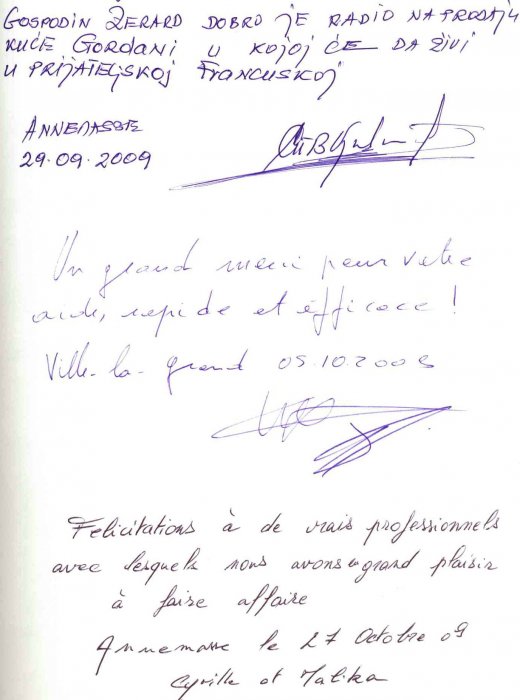 GOSPODIN ŽERARD DOBRO JE RADIO NA PRODAJU
KUĆE GORDANI U KOJOJ ĆE DA ŽIVI
U PRIJATELJSKOJ FRANCUSKOJ
ANNEMASSE
29.09.2009
Un grand merci pour votre
aide, rapide et efficace !
Ville-la-grand 05.10.2009
Felicitations à de vrais professionnels
avec lesquels nous avons eu grand plaisir
à faire affaire
Annemasse le 27 Octobre 09
Cyrille et Malika